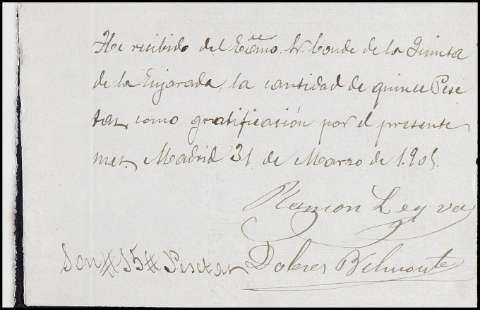 He recibido del Excmo. Sr. Conde de la Quinta
de la Enjarada, la cantidad de quince Pese
tas, como gratificación por el presente
mes. Madrid 31 de Marzo de 1905.
Ramon Leyva
Son # 15 # Pesetas Dolores Belmonte